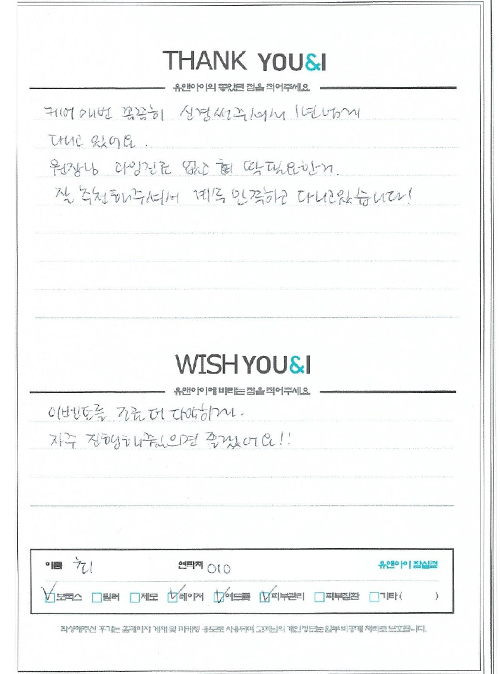 THANK YOU&I
유앤아이의 좋았던 점을 적어주세요
케어 매번 꼼꼼히 신경써주셔서 1년넘게
다니고 있어요.
원장님 과잉진료 없고 딱 필요한거
잘 추천해주셔서 계속 만족하고 다니고있습니다!
WISH YOU&I
유앤아이에 바라는 점을 적어주세요
이벤트를 조금 더 다양하게
자주 진행해주시면 좋겠어요!!
이름 최 연락처 010 유앤아이 잠실점
보톡스 필러 제모 레이저 여드름 피부관리 피부질환 기타( )
작성해주신 후기는 홈페이지 게재 및 마케팅 용도로 사용되며 고객님의 개인정보는 일부 비공개 처리로 보호됩니다.